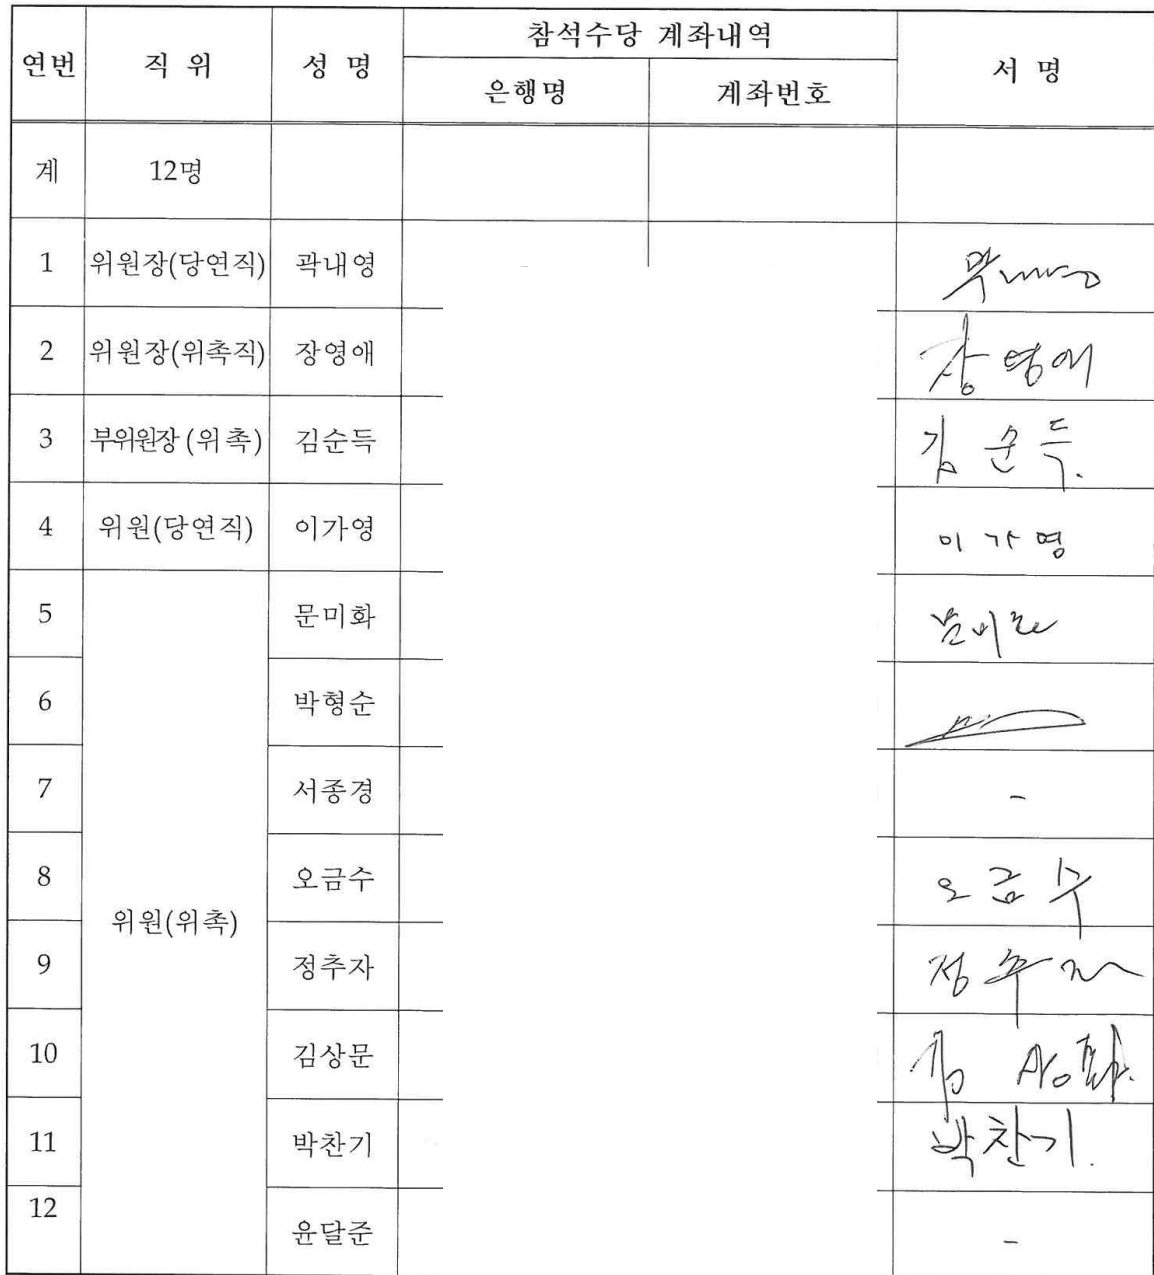 연번 직 위 성 명 참석수당 계좌내역 서 명
은행명 계좌번호
계 12명
1 위원장(당연직) 곽내영
2 위원장(위촉직) 장영애 장영애
3 부위원장 (위촉) 김순득 김 순 득.
4 위원(당연직) 이가영 이 가 영
5 문미화 문미화
6 박형순
7 서종경 -
8 오금수 오 금 수
위원(위촉)
9 정추자 정 추 자
10 김상문 김
11 박찬기 박찬기.
12 윤달준 -